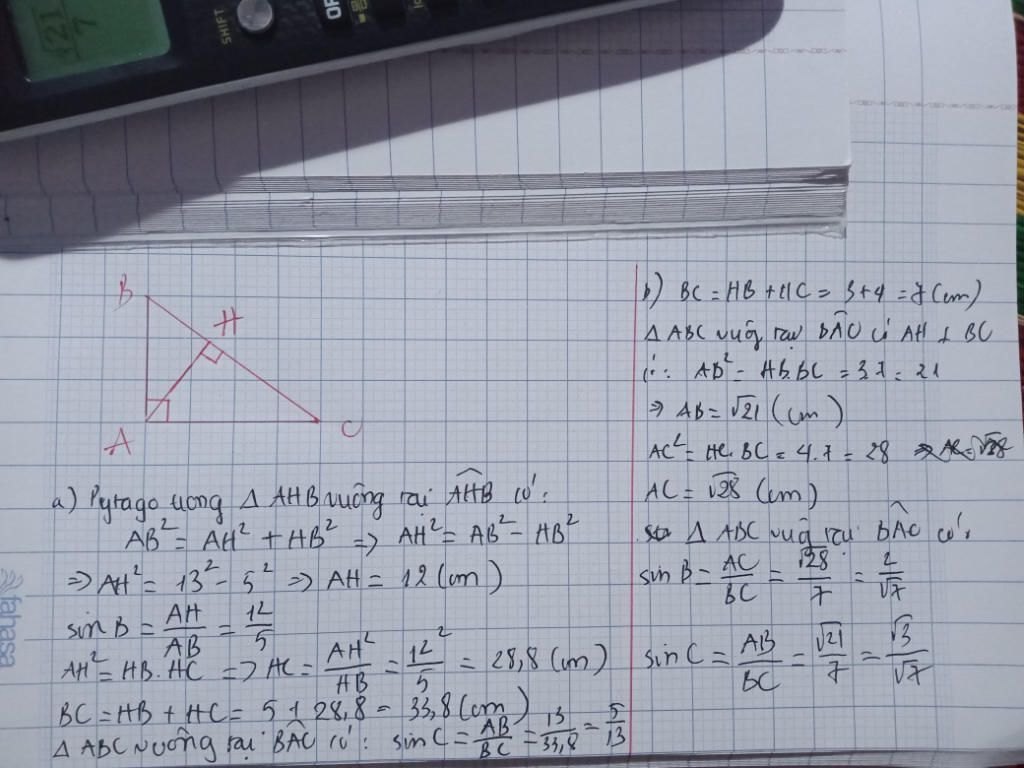 √21/7
SHIFT
B
H
A
C
a) Pytago trong △ AHB vuông tại AHB có:
AB² = AH² + HB² => AH² = AB² - HB²
=> AH² = 13² - 5² => AH = 12 (cm)
sin B = AH/AB = 12/5
AH² = HB. HC => HC = AH²/HB = 12²/5 = 28,8 (cm)
BC = HB + HC = 5 + 28,8 = 33,8 (cm)
△ ABC vuông tại BAC có: sin C = AB/BC = 13/33,8 = 5/13
b) BC = HB + HC = 3+4 = 7 (cm)
△ ABC vuông tại BAC có AH ⊥ BC
AB² = HB.BC = 3.7 = 21
=> AB = √21 (cm)
AC² = HC. BC = 4.7 = 28
AC = √28 (cm)
△ ABC vuông tại BAC có:
sin B = AC/BC = √28/7 = 2/√7
sin C = AB/BC = √21/7 = √3/√7
fahasa